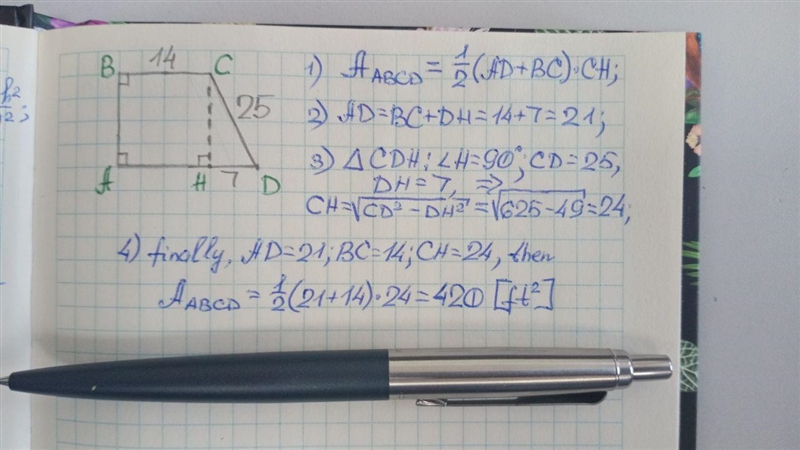 h²
2;
14
B
C
25
A
H
7
D
1) A_ABCD = 1/2 (AD+BC)·CH;
2) AD=BC+DH=14+7=21;
3) △CDH: ∠H=90°; CD=25,
DH=7, ⇒
CH=√(CD²-DH²)=√(625-49)=24;
4) finally, AD=21; BC=14; CH=24, then
A_ABCD = 1/2 (21+14)·24=420 [ft²]